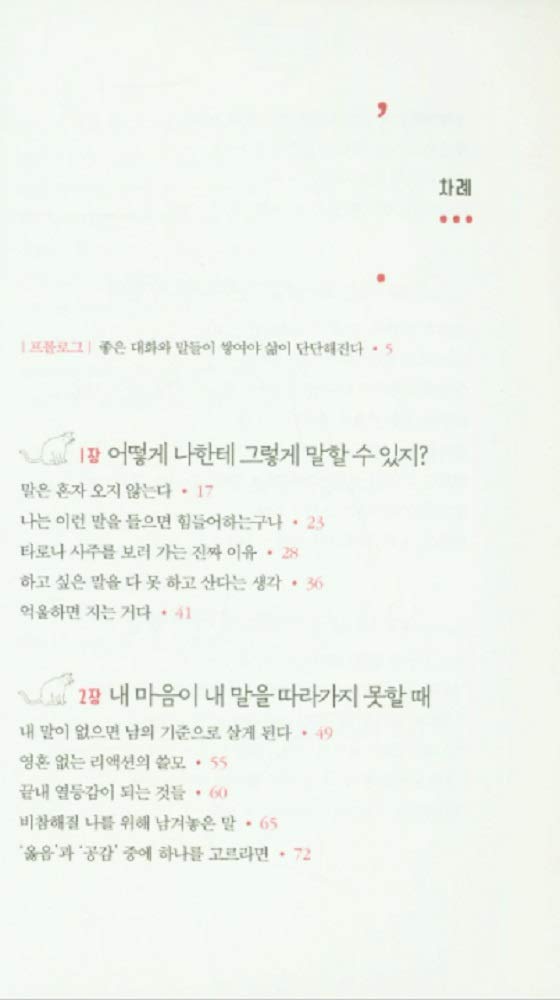 차례
[프롤로그] 좋은 대화와 말들이 쌓여야 삶이 단단해진다 • 5
1장 어떻게 나한테 그렇게 말할 수 있지?
말은 혼자 오지 않는다 • 17
나는 이런 말을 들으면 힘들어하는구나 • 23
타로나 사주를 보러 가는 진짜 이유 • 28
하고 싶은 말을 다 못 하고 산다는 생각 • 36
억울하면 지는 거다 • 41
2장 내 마음이 내 말을 따라가지 못할 때
내 말이 없으면 남의 기준으로 살게 된다 • 49
영혼 없는 리액션의 쓸모 • 55
끝내 열등감이 되는 것들 • 60
비참해질 나를 위해 남겨놓은 말 • 65
‘옳음’과 ‘공감’ 중에 하나를 고르라면 • 72